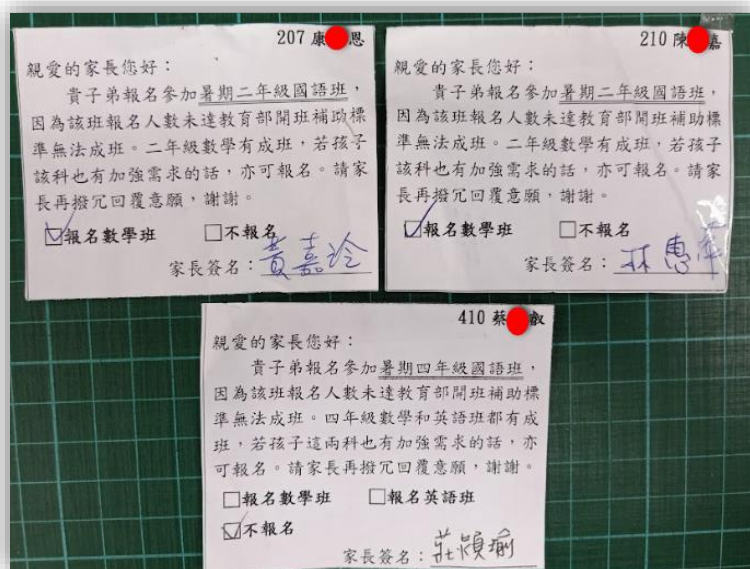 207 康 恩
親愛的家長您好：
貴子弟報名參加暑期二年級國語班，
因為該班報名人數未達教育部開班補助標
準無法成班。二年級數學有成班，若孩子
該科也有加強需求的話，亦可報名。請家
長再撥冗回覆意願，謝謝。
☑報名數學班 □不報名
家長簽名：黃嘉玲
210 陳 嘉
親愛的家長您好：
貴子弟報名參加暑期二年級國語班，
因為該班報名人數未達教育部開班補助標
準無法成班。二年級數學有成班，若孩子
該科也有加強需求的話，亦可報名。請家
長再撥冗回覆意願，謝謝。
☑報名數學班 □不報名
家長簽名：林惠萍
410 蔡 叡
親愛的家長您好：
貴子弟報名參加暑期四年級國語班，
因為該班報名人數未達教育部開班補助標
準無法成班。四年級數學和英語班都有成
班，若孩子這兩科也有加強需求的話，亦
可報名。請家長再撥冗回覆意願，謝謝。
□報名數學班 □報名英語班
☑不報名
家長簽名：莊